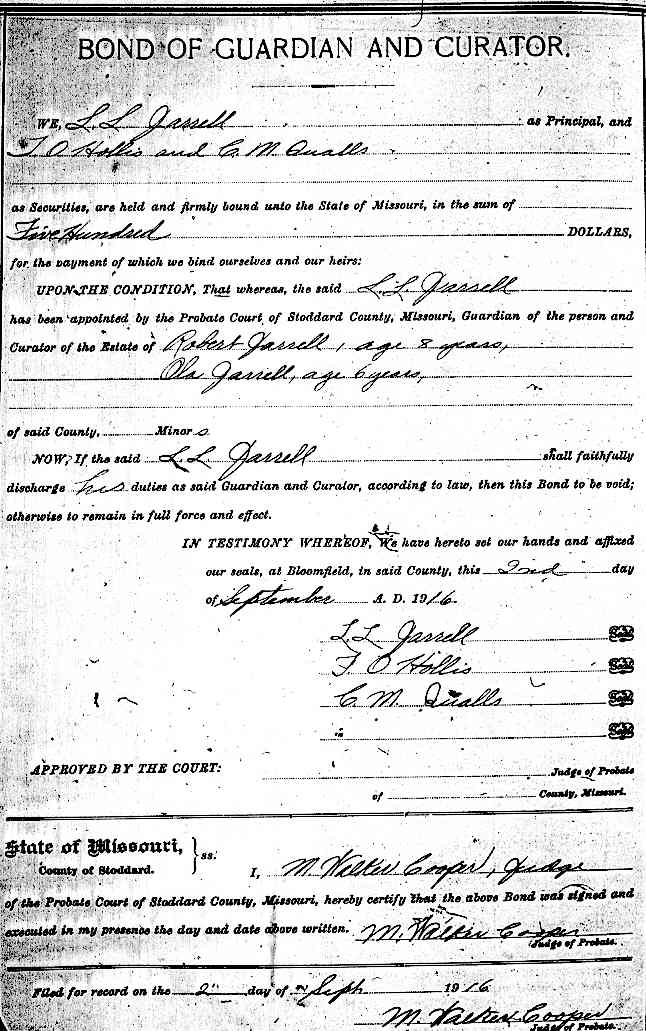 BOND OF GUARDIAN AND CURATOR.
WE, L. L. Jarrell as Principal, and
F O Hollis and C. M. Qualls
as Securities, are held and firmly bound unto the State of Missouri, in the sum of
Five Hundred DOLLARS,
for the payment of which we bind ourselves and our heirs:
UPON THE CONDITION, That whereas, the said L. L. Jarrell
has been appointed by the Probate Court of Stoddard County, Missouri, Guardian of the person and
Curator of the Estate of Robert Jarrell, age 8 years,
Ola Jarrell, age 6 years,
of said County, Minors
NOW, If the said L. L. Jarrell shall faithfully
discharge his duties as said Guardian and Curator, according to law, then this Bond to be void;
otherwise to remain in full force and effect.
IN TESTIMONY WHEREOF, We have hereto set our hands and affixed
our seals, at Bloomfield, in said County, this 2nd day
of September A. D. 1916.
L. L. Jarrell Seal
F. O Hollis Seal
C. M. Qualls Seal
Seal
APPROVED BY THE COURT: Judge of Probate
of County, Missouri.
State of Missouri, } ss.
County of Stoddard.
I, M. Walker Cooper, Judge
of the Probate Court of Stoddard County, Missouri, hereby certify that the above Bond was signed and
executed in my presence the day and date above written. M. Walker Cooper
Judge of Probate.
Filed for record on the 2" day of Sept 1916
M. Walker Cooper
Judge of Probate.